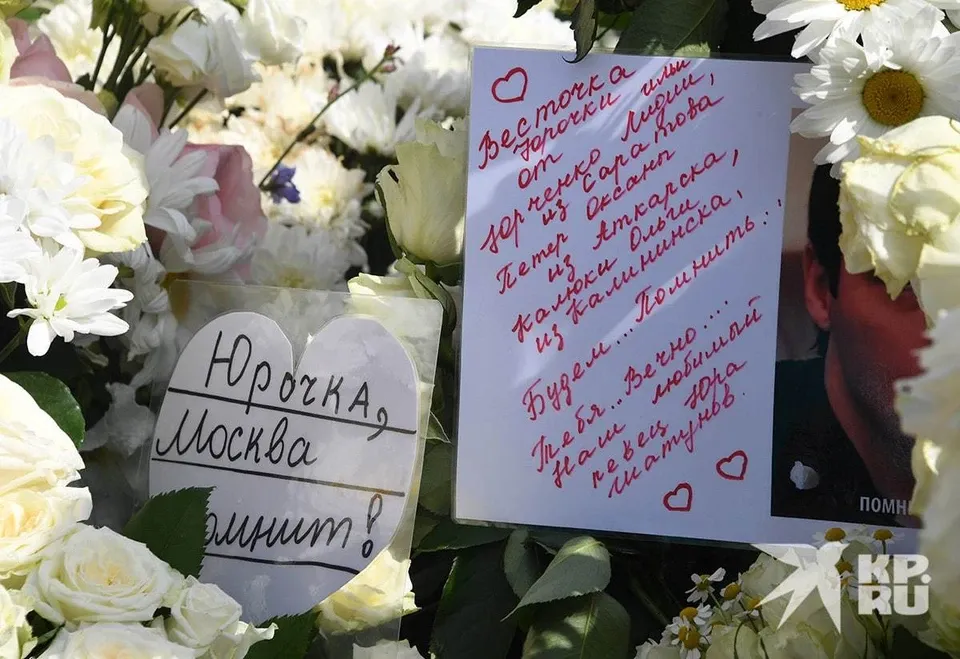 Весточка
Юрочки
от Лидии,
Юрченко
из Саратова
Петер Оксаны
из Аткарска,
Калюки Ольги
из Калининска,
Будем... Помнить...
Тебя... Вечно...
Наш любимый
певец Юра
Шатунов.
Юрочка,
Москва
омнит!
ПОМН
KP.RU